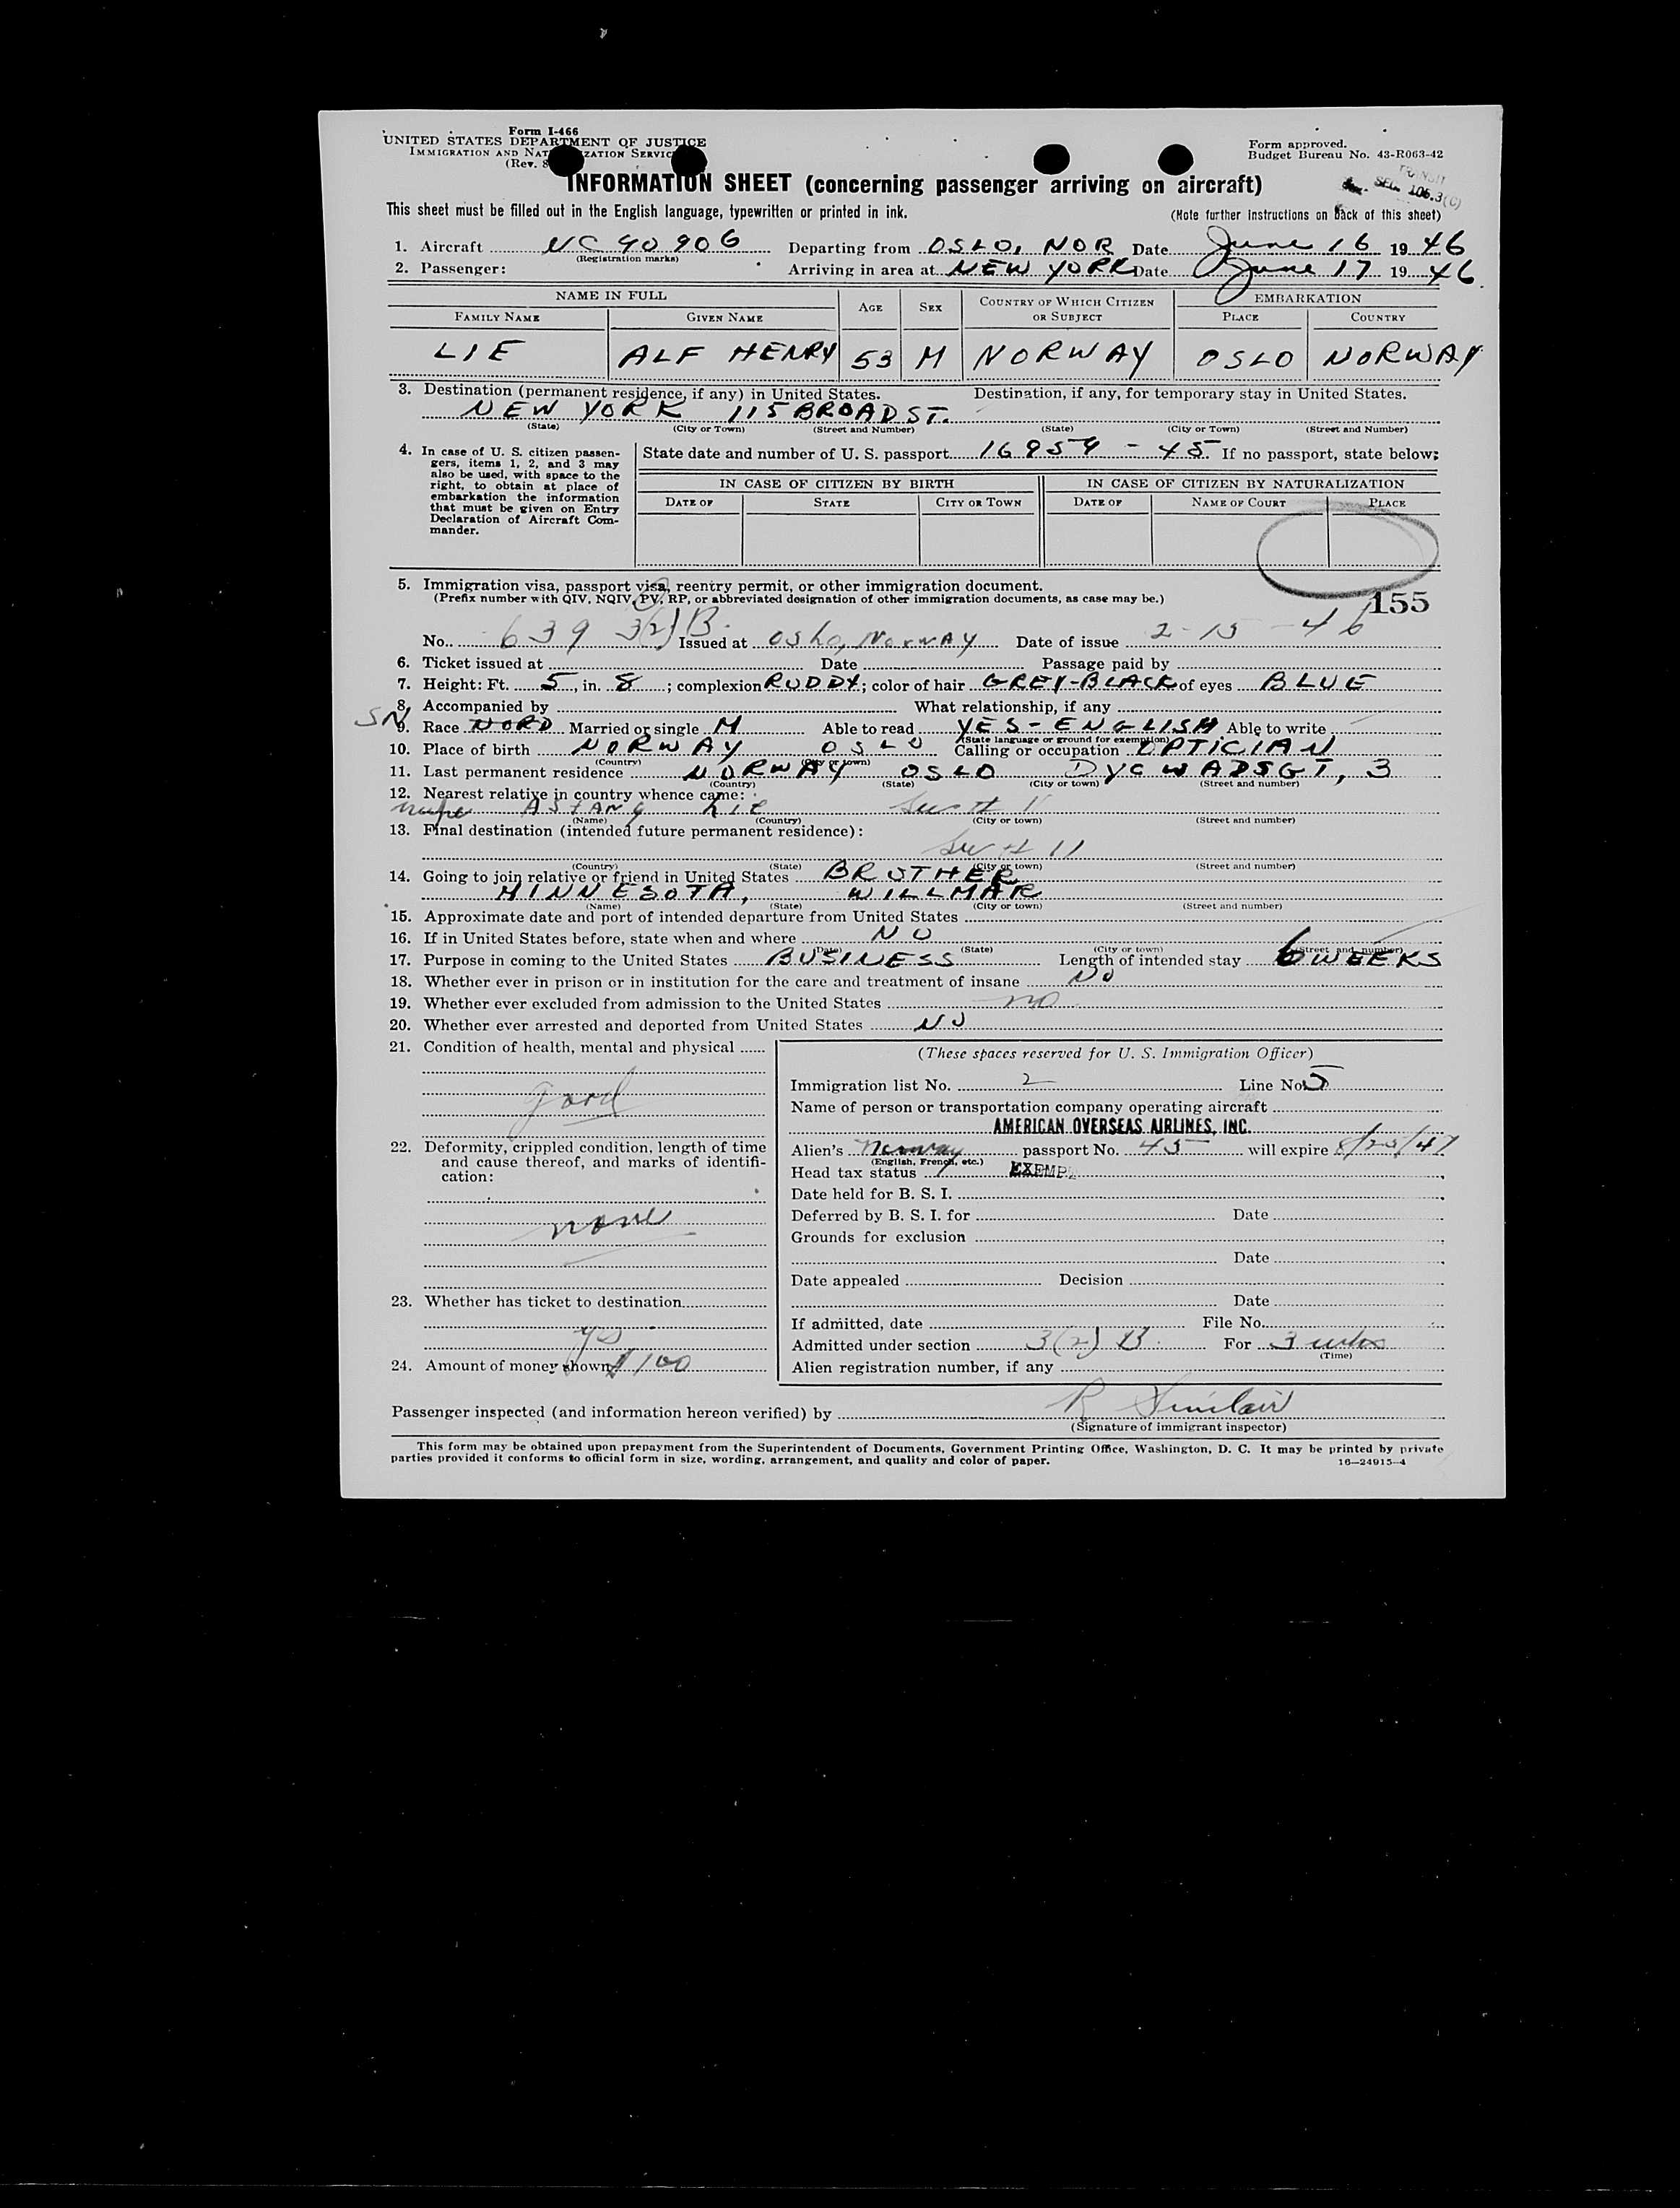 Form I-466
UNITED STATES DEPARTMENT OF JUSTICE
IMMIGRATION AND NAT ZATION SERVIC
(Rev.
Form approved.
Budget Bureau No. 43-R063-42
INFORMATION SHEET (concerning passenger arriving on aircraft)
SEC. 106.3(C)
This sheet must be filled out in the English language, typewritten or printed in ink.
(Note further instructions on back of this sheet)
1. Aircraft NC 90 906 Departing from OSLO, NOR Date June 16 1946
(Registration marks)
2. Passenger: Arriving in area at NEW YORK Date June 17 1946
NAME IN FULL AGE SEX COUNTRY OF WHICH CITIZEN OR SUBJECT EMBARKATION
FAMILY NAME GIVEN NAME PLACE COUNTRY
LIE ALF HENRY 53 M NORWAY OSLO NORWAY
3. Destination (permanent residence, if any) in United States. Destination, if any, for temporary stay in United States.
NEW YORK 115 BROAD ST.
(State) (City or Town) (Street and Number) (State) (City or Town) (Street and Number)
4. In case of U. S. citizen passengers, items 1, 2, and 3 may also be used, with space to the right, to obtain at place of embarkation the information that must be given on Entry Declaration of Aircraft Commander.
State date and number of U. S. passport 16954 - 45. If no passport, state below:
IN CASE OF CITIZEN BY BIRTH IN CASE OF CITIZEN BY NATURALIZATION
DATE OF STATE CITY OR TOWN DATE OF NAME OF COURT PLACE
5. Immigration visa, passport visa, reentry permit, or other immigration document.
(Prefix number with QIV, NQIV, PV, RP, or abbreviated designation of other immigration documents, as case may be.)
155
No. 639 3(2)B. Issued at Oslo, Norway Date of issue 2-15-46
6. Ticket issued at Date Passage paid by
7. Height: Ft. 5, in. 8; complexion RUDDY; color of hair GREY-BLACK of eyes BLUE
8. Accompanied by What relationship, if any
SN
9. Race NORD Married or single M Able to read YES - ENGLISH Able to write
(State language or ground for exemption)
10. Place of birth NORWAY OSLO Calling or occupation OPTICIAN
(Country) (City or town)
11. Last permanent residence NORWAY OSLO DYCWADSGT, 3
(Country) (State) (City or town) (Street and number)
12. Nearest relative in country whence came:
Lie See # 11
(Name) (Country) (City or town) (Street and number)
13. Final destination (intended future permanent residence):
See # 11
(Country) (State) (City or town) (Street and number)
14. Going to join relative or friend in United States BROTHER
MINNESOTA, WILLMAR
(Name) (State) (City or town) (Street and number)
15. Approximate date and port of intended departure from United States
16. If in United States before, state when and where NO
(Date) (State) (City or town) (Street and number)
17. Purpose in coming to the United States BUSINESS Length of intended stay 6 WEEKS
18. Whether ever in prison or in institution for the care and treatment of insane NO
19. Whether ever excluded from admission to the United States no
20. Whether ever arrested and deported from United States NO
21. Condition of health, mental and physical
good
22. Deformity, crippled condition, length of time and cause thereof, and marks of identification:
none
23. Whether has ticket to destination
yes
24. Amount of money shown $100
(These spaces reserved for U. S. Immigration Officer)
Immigration list No. 2 Line No. 5
Name of person or transportation company operating aircraft
AMERICAN OVERSEAS AIRLINES, INC.
Alien's Norway passport No. 45 will expire 8/25/47
(English, French, etc.)
Head tax status EXEMPT
Date held for B. S. I.
Deferred by B. S. I. for Date
Grounds for exclusion
Date
Date appealed Decision
Date
If admitted, date File No.
Admitted under section 3(2) B. For 3 mos
(Time)
Alien registration number, if any
Passenger inspected (and information hereon verified) by R Sinclair
(Signature of immigrant inspector)
This form may be obtained upon prepayment from the Superintendent of Documents, Government Printing Office, Washington, D. C. It may be printed by private
parties provided it conforms to official form in size, wording, arrangement, and quality and color of paper.
16—24915-4